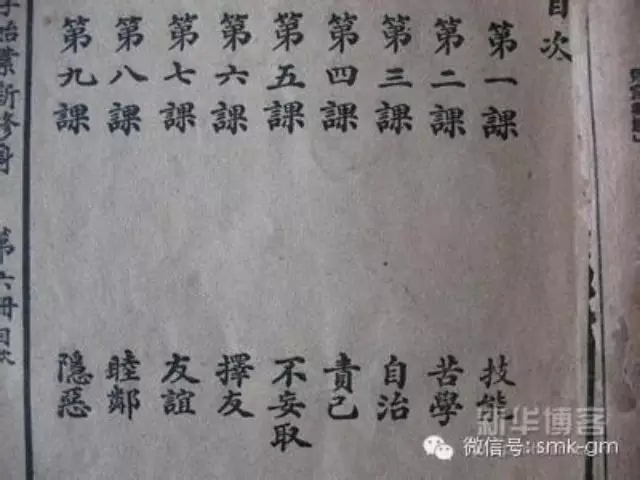 目次
第一課 技能
第二課 苦學
第三課 自治
第四課 責己
第五課 不妄取
第六課 擇友
第七課 友誼
第八課 睦鄰
第九課 隱惡
子始業新修身 第六冊目次
新华博客
微信号:smk-gm